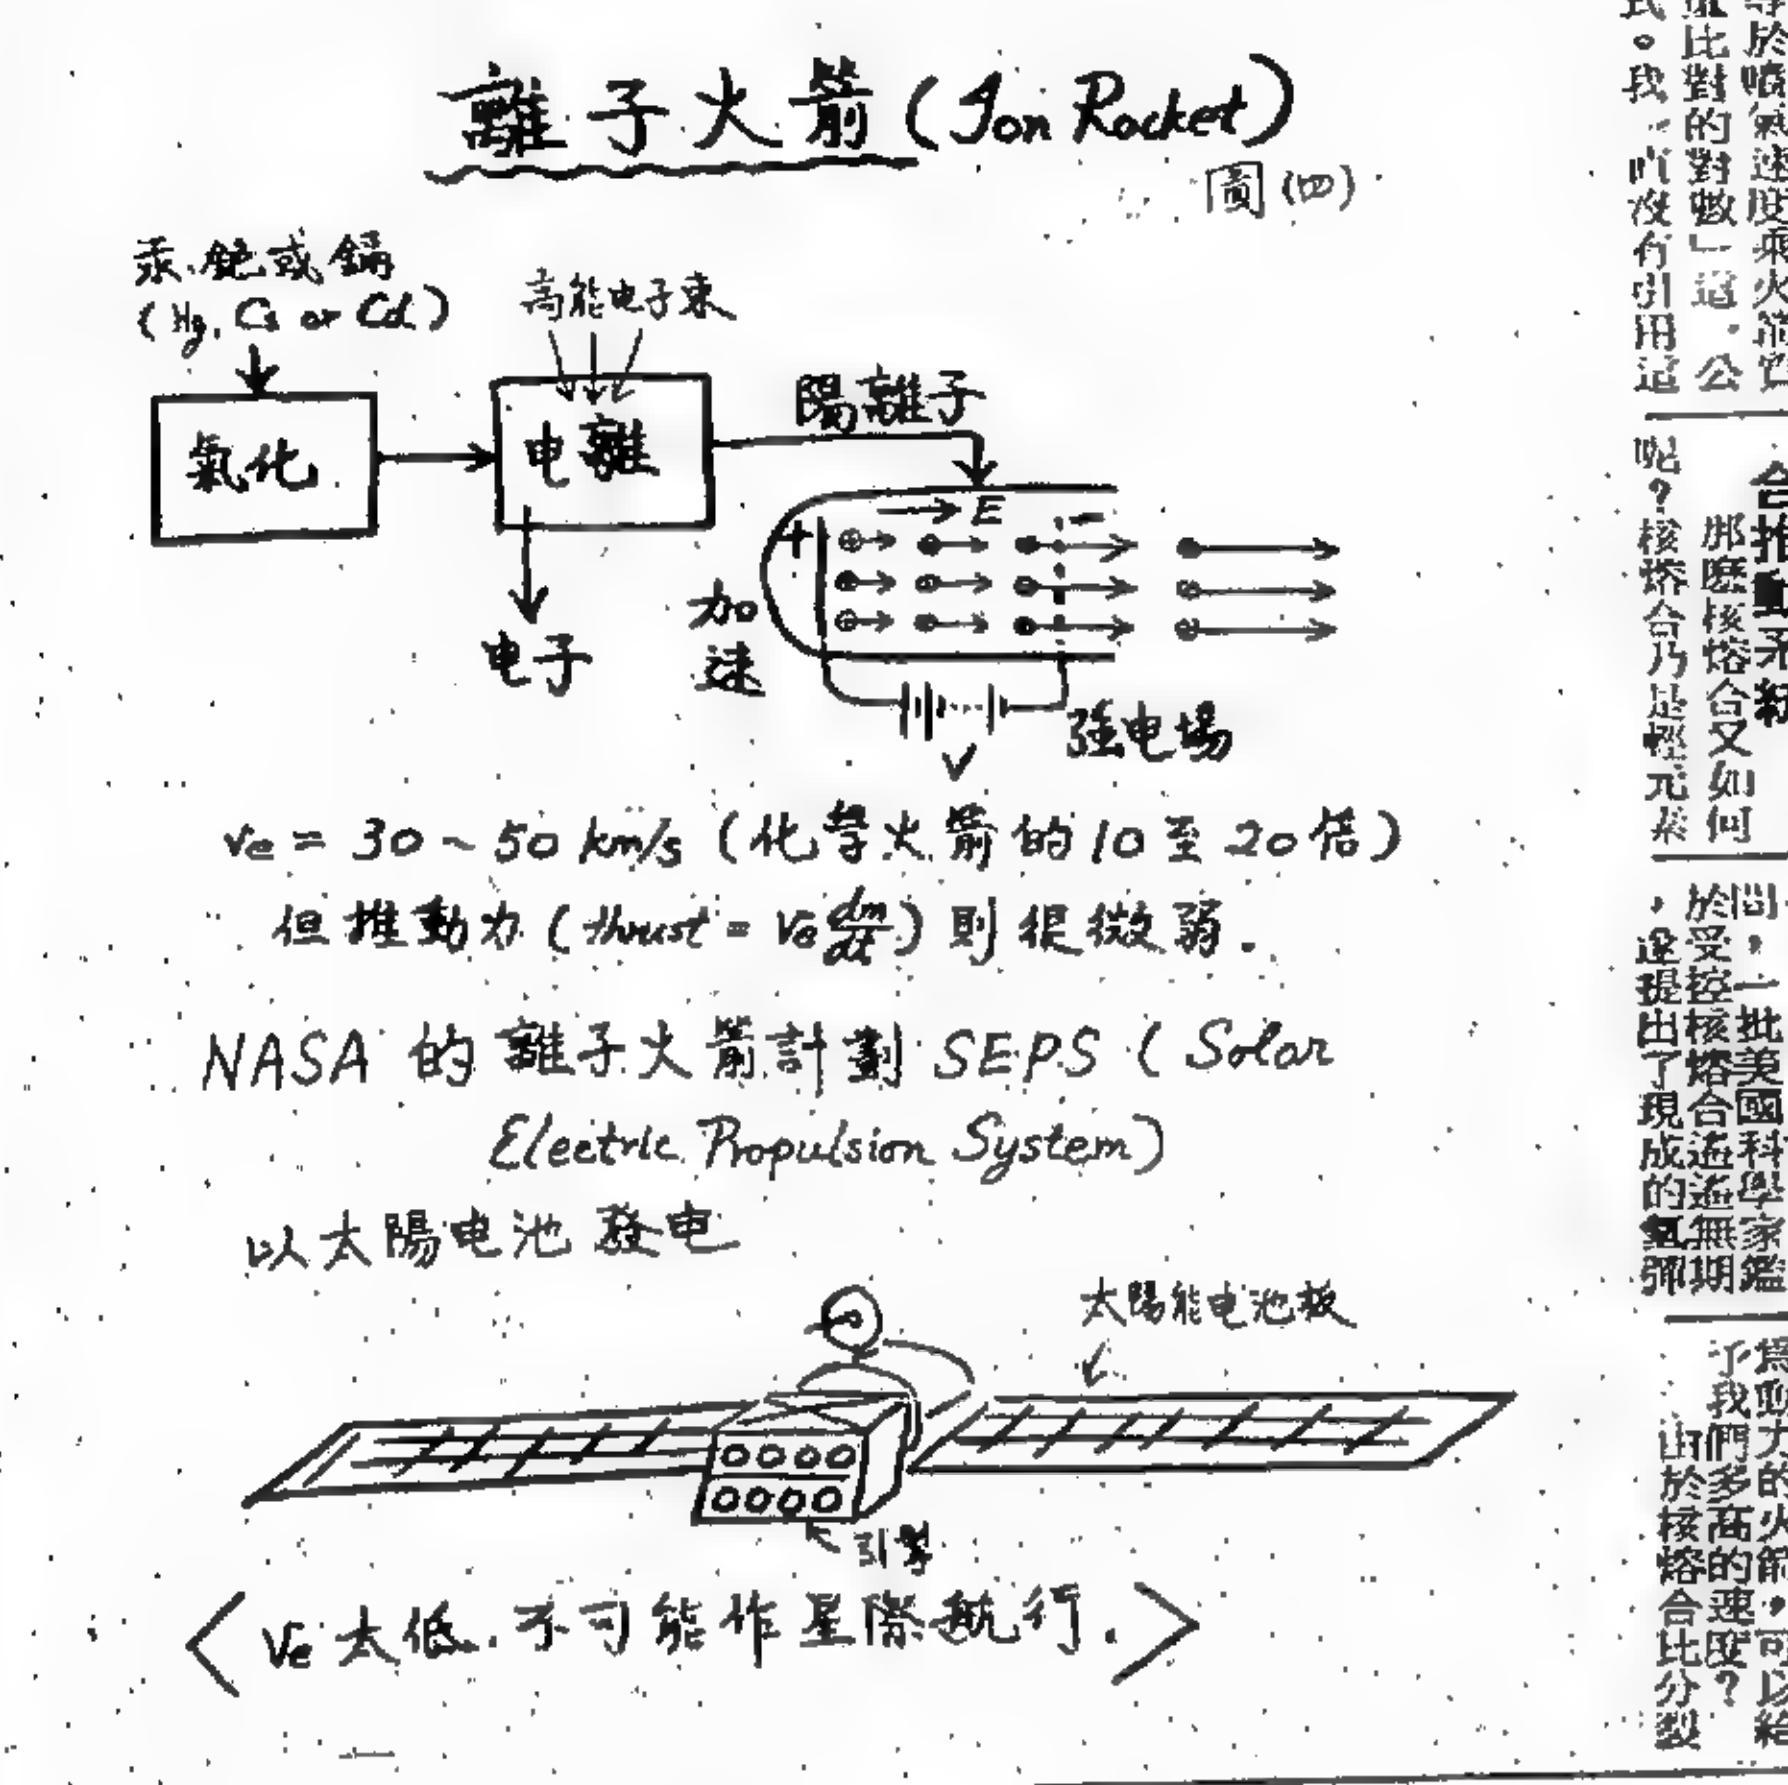 離子火箭(Ion Rocket)
圖(四)
汞.銫或鎘
(Hg, Cs or Cd)
高能电子束
氣化
电離
陽離子
E
+
加
速
电子
V
強电場
ve = 30 ~ 50 km/s (化學火箭的10至20倍)
但推動力(thrust = ve dm/dt)則很微弱.
NASA 的離子火箭計劃 SEPS (Solar
Electric Propulsion System)
以太陽电池發电
太陽能电池板
引擎
〈ve太低.不可能作星際航行.〉
等於噴氣速度乘火箭質
比對的對數」這.公
式。我一直沒有引用這
合推動
那麼核熔合又如何
呢?核熔合乃是輕元素
一批美國科學家鑑
於受控核熔合遙遙無期
,遂提出了現成的氫彈
為動力的火箭,可以給
了我們多高的速度?
由於核熔合比分裂